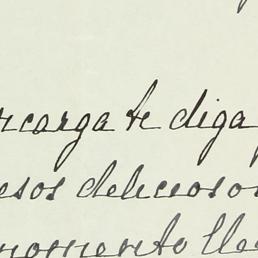 ncarga te diga
esos deliciosos
momento lle